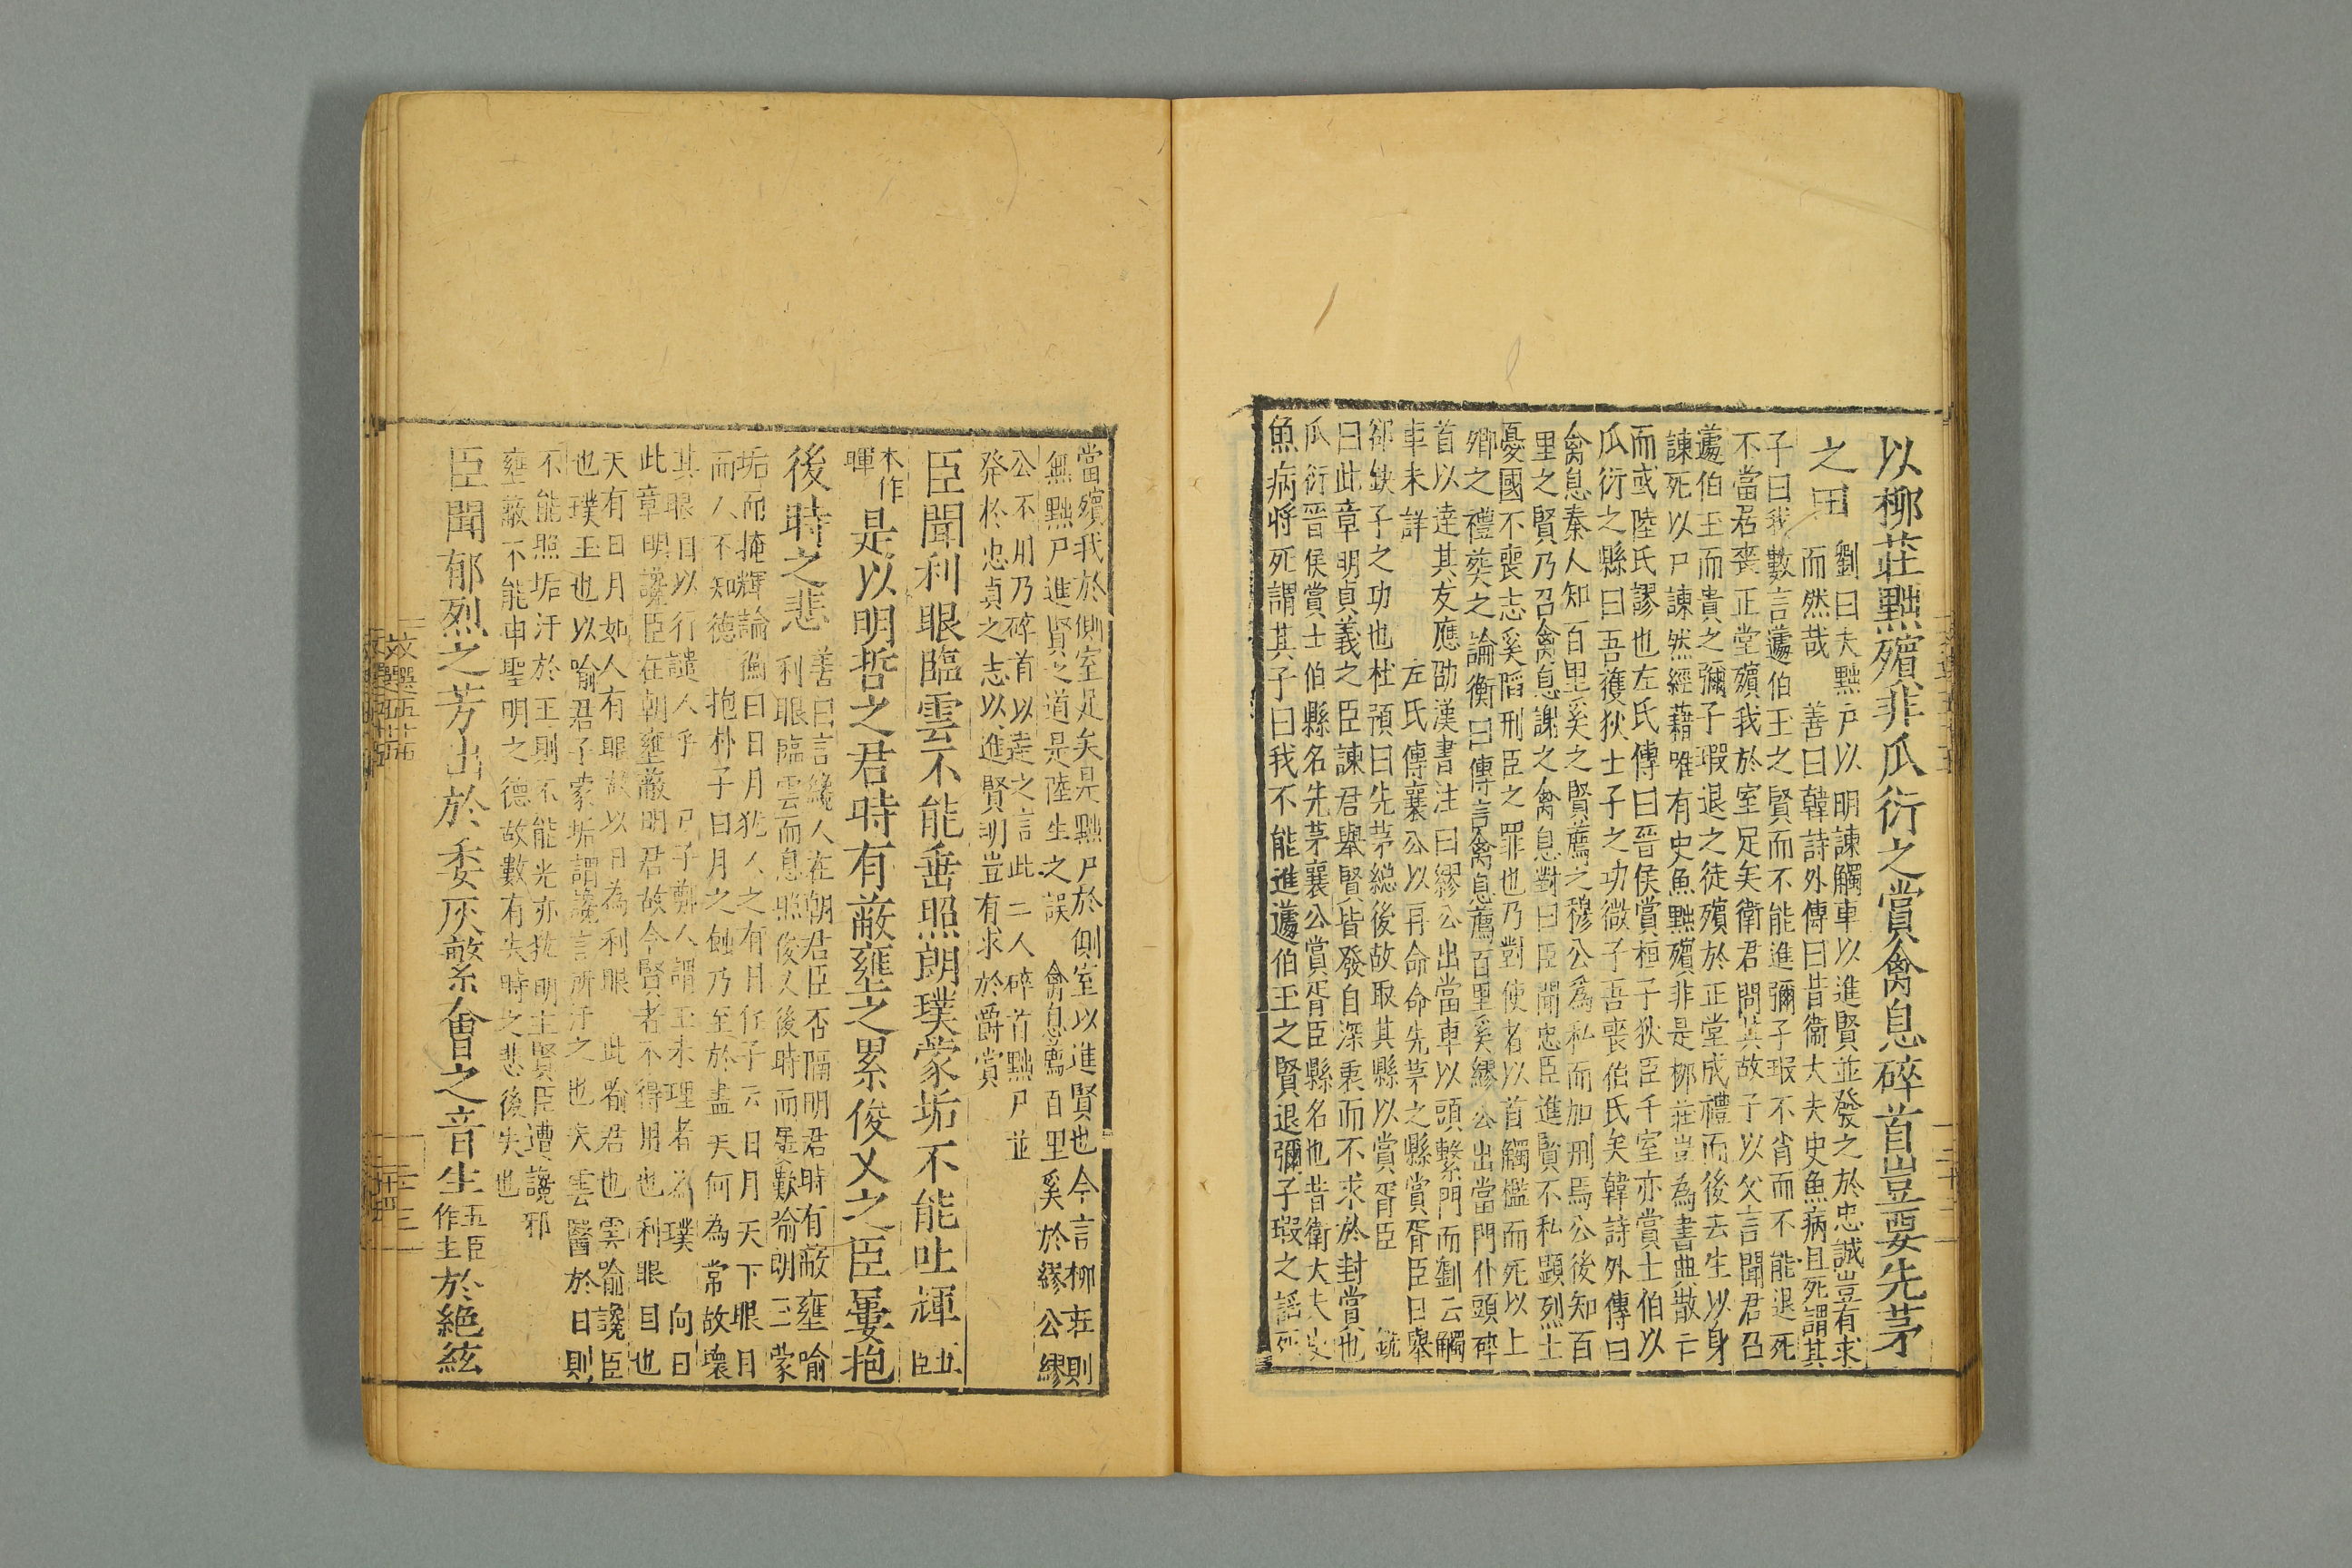 以柳莊黜殯非瓜衍之賞禽息碎首豈要先茅
之田
劉曰夫黜尸以明諫觸車以進賢並發之於忠誠豈有求
而然哉 善曰韓詩外傳曰昔衛大夫史魚病且死謂其
子曰我數言蘧伯玉之賢而不能進彌子瑕不肖而不能退死
不當居喪正堂殯我於室足矣衛君問其故子以父言聞君召
蘧伯玉而貴之彌子瑕退之徒殯於正堂成禮而後去生以身
諫死以尸諫然經藉唯有史魚黜殯非是柳莊豈為書典散亡
而或陸氏謬也左氏傳曰晉侯賞桓子狄臣千室亦賞士伯以
瓜衍之縣曰吾獲狄士子之功微子吾喪伯氏矣韓詩外傳曰
禽息秦人知百里奚之賢薦之穆公為私而加刑焉公後知百
里之賢乃召禽息謝之禽息對曰臣聞忠臣進賢不私顯烈士
憂國不喪志奚陷刑臣之罪也乃對使者以首觸楹而死以上
卿之禮葬之論衡曰傳言禽息薦百里奚繆公出當門仆頭碎
首以達其友應劭漢書注曰繆公出當車以頭繫門而劉云觸
車未詳 左氏傳襄公以再命命先茅之縣賞胥臣曰舉
郤缺子之功也杜預曰先茅絕後故取其縣以賞胥臣 銑
曰此章明貞義之臣諫君舉賢皆發自深衷而不求於封賞也
瓜衍晉侯賞士伯縣名先茅襄公賞胥臣縣名也昔衛大夫史
魚病將死謂其子曰我不能進蘧伯玉之賢退彌子瑕之謡死
當殯我於側室足矣是黜尸於側室以進賢也今言柳莊則
無黜尸進賢之道是陸生之誤 禽息薦百里奚於繆公繆
公不用乃碎首以達之言此二人碎首黜尸並
發於忠貞之志以進賢明豈有求於爵賞
臣聞利眼臨雲不能垂照朗璞蒙垢不能吐輝五臣
本作暉是以明哲之君時有蔽壅之累俊乂之臣屢抱
後時之悲
善曰言讒人在朝君臣否隔明君時有蔽壅喻
利眼臨雲而息照俊乂後時而屢歎喻朗玉蒙
垢而掩輝論衡曰日月犹人之有目任子云日月天下眼目
而人不知德 抱朴子曰月之蝕乃至於盡天何為常故壞
其眼目以行譴人乎 尹子鄭人謂玉未理者為璞 向曰
此章明讒臣在朝壅蔽明君故令賢者不得用也利眼目也
天有日月如人有眼故以日為利眼 此喻君也雲喻讒臣
也璞玉也以喻君子蒙垢謂讒言所汙之也夫雲翳於日則
不能照垢汙於玉則不能光亦犹明主賢臣遭讒邪
壅蔽不能申聖明之德故數有失時之悲後失也
臣聞郁烈之芳出於委灰繁會之音生五臣作主於絶絃
文選五十五
二十三